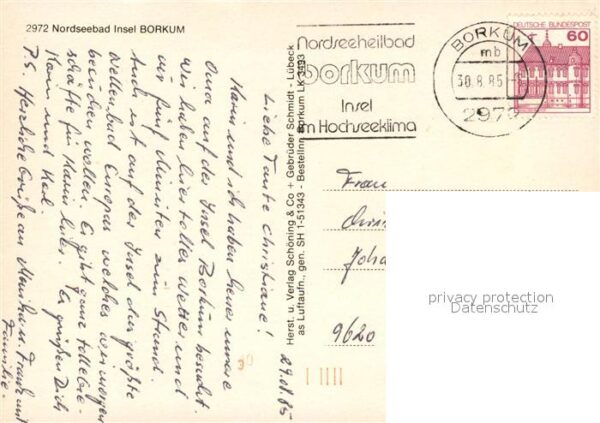 2972 Nordseebad Insel BORKUM
Liebe Tante Christiane!
Karin und ich haben heuer unsere
Oma auf der Insel Borkum besucht.
Wir haben hier tolles Wetter und
nur fünf Minuten zum Strand.
Auch ist auf der Insel das größte
Wellenbad Europas welches wir morgen
besuchen wollen. Es gibt ganz tolle Ge-
schäfte für Karin hier. Es grüßen Dich
Karin und Karl.
P.S. Herzliche Grüße an Monika u. Frank mit
Familie.
29.08.85
Herst. u. Verlag Schöning & Co + Gebrüder Schmidt - Lübeck
as Luftaufn., gen. SH 1-51343 - Bestellnr. Borkum LK 3493
Nordseeheilbad
borkum
Insel
im Hochseeklima
BORKUM
mb
30.8.85
297
DEUTSCHE BUNDESPOST
60
Frau
Joha
9620
privacy protection
Datenschutz